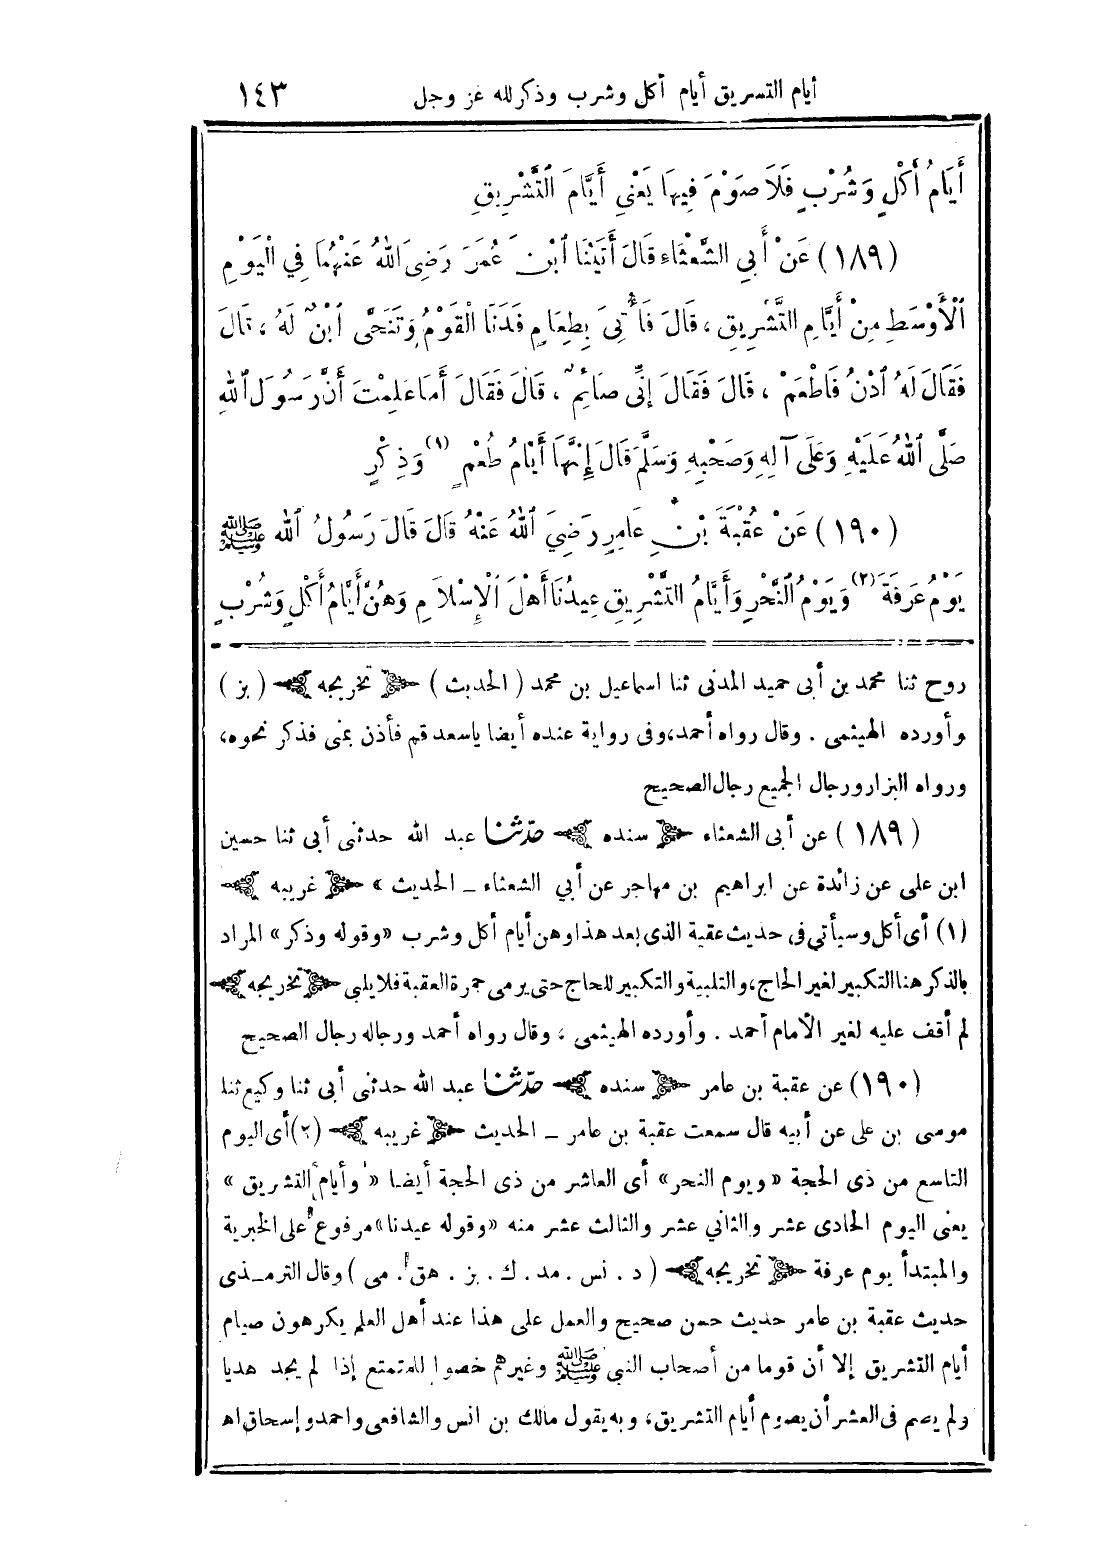 أيام التسريق أيام أكل وشرب وذكر لله عز وجل ١٤٣
أَيَامُ أَكْلٍ وَشُرْبٍ فَلَا صَوْمَ فِيهَا يَعْنِي أَيَّامَ التَّشْرِيقِ
(١٨٩) عَنْ أَبِي الشَّعْثَاءِ قَالَ أَتَيْنَا ابْنَ عُمَرَ رَضِيَ اللهُ عَنْهُمَا فِي الْيَوْمِ
الْأَوْسَطِ مِنْ أَيَّامِ التَّشْرِيقِ، قَالَ فَأُتِيَ بِطَعَامٍ فَدَنَا الْقَوْمُ وَتَنَحَّى ابْنٌ لَهُ، قَالَ
فَقَالَ لَهُ ادْنُ فَاطْعَمْ، قَالَ فَقَالَ إِنِّي صَائِمٌ، قَالَ فَقَالَ أَمَا عَلِمْتَ أَنَّ رَسُولَ اللهِ
صَلَّى اللهُ عَلَيْهِ وَعَلَى آلِهِ وَصَحْبِهِ وَسَلَّمَ قَالَ إِنَّهَا أَيَّامُ طُعْمٍ (١) وَذِكْرٍ
(١٩٠) عَنْ عُقْبَةَ بْنِ عَامِرٍ رَضِيَ اللهُ عَنْهُ قَالَ قَالَ رَسُولُ اللهِ ﷺ
يَوْمُ عَرَفَةَ (٢) وَيَوْمُ النَّحْرِ وَأَيَّامُ التَّشْرِيقِ عِيدُنَا أَهْلَ الْإِسْلَامِ وَهُنَّ أَيَّامُ أَكْلٍ وَشُرْبٍ
روح ثنا محمد بن أبى حميد المدنى ثنا اسماعيل بن محمد (الحديث) تخريجه (بز)
وأورده الهيثمى . وقال رواه أحمد، وفى رواية عنده أيضا ياسعد قم فأذن بمنى فذكر نحوه،
ورواه البزار ورجال الجميع رجال الصحيح
(١٨٩) عن أبى الشعثاء سنده حدّثنا عبد الله حدثنى أبى ثنا حسين
ابن على عن زائدة عن ابراهيم بن مهاجر عن أبي الشعثاء ــ الحديث » غريبه
(١) أى أكل وسيأتي فى حديث عقبة الذى بعد هذا وهن أيام أكل وشرب «وقوله وذكر» المراد
بالذكر هنا التكبير لغير الحاج، والتلبية والتكبير للحاج حتى يرمى جمرة العقبة فلا يلبى تخريجه
لم أقف عليه لغير الأمام أحمد . وأورده الهيثمى ، وقال رواه أحمد ورجاله رجال الصحيح
(١٩٠) عن عقبة بن عامر سنده حدّثنا عبد الله حدثنى أبى ثنا وكيع ثنا
موسى بن على عن أبيه قال سمعت عقبة بن عامر ــ الحديث غريبه (٢) أى اليوم
التاسع من ذى الحجة «ويوم النحر» أى العاشر من ذى الحجة أيضا «وأيام التشريق»
يعنى اليوم الحادى عشر والثاني عشر والثالث عشر منه «وقوله عيدنا» مرفوع على الخبرية
والمبتدأ يوم عرفة تخريجه (د . نس . مذ . ك . بز . هق . مى) وقال الترمــذى
حديث عقبة بن عامر حديث حسن صحيح والعمل على هذا عند أهل العلم يكرهون صيام
أيام التشريق إلا أن قوما من أصحاب النبى ﷺ وغيرهم خصوا للمتمتع إذا لم يجد هديا
ولم يصم فى العشر أن يصوم أيام التشريق، وبه يقول مالك بن انس والشافعى واحمد وإسحاق اهـ